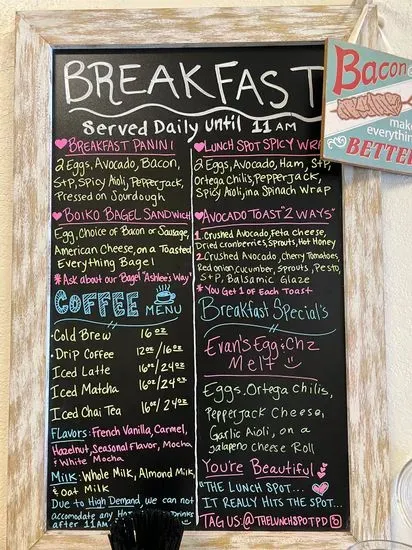 BREAKFAST
Served Daily until 11 AM
BREAKFAST PANINI
2 Eggs, Avocado, Bacon,
S+P, Spicy Aioli, PepperJack,
Pressed on Sourdough
BOIKO BAGEL SANDWICH
Egg, Choice of Bacon or Sausage,
American Cheese, on a Toasted
Everything Bagel
*Ask about our Bagel "Ashlee's Way"
COFFEE MENU
Cold Brew 16 oz
Drip Coffee 12oz/16oz
Iced Latte 16oz/24oz
Iced Matcha 16oz/24oz
Iced Chai Tea 16oz/24oz
Flavors: French Vanilla, Carmel,
Hazelnut, Seasonal Flavor, Mocha
& White Mocha
Milk: Whole Milk, Almond Milk,
& Oat Milk
Due to High Demand we can not
accomodate any Drinks
after 11AM
LUNCH SPOT SPICY WRAP
2 Eggs, Avocado, Ham, S+P,
Ortega Chilis, PepperJack,
Spicy Aioli, in a Spinach Wrap
AVOCADO TOAST "2 WAYS"
1 Crushed Avocado, Feta Cheese,
Dried Cranberries, Sprouts, Hot Honey
2 Crushed Avocado, Cherry Tomatoes,
Red onion, cucumber, sprouts, Pesto,
S+P, Balsamic Glaze
*You Get 1 of Each Toast
Breakfast Special's
Evan's Egg & Chz
Melt
Eggs, Ortega Chilis,
Pepperjack Cheese,
Garlic Aioli, on a
Jalapeno Cheese Roll
You're Beautiful
"THE LUNCH SPOT...
IT REALLY HITS THE SPOT"
TAG US: @THELUNCHSPOTPD
Bacon
make
everythin
BETTER